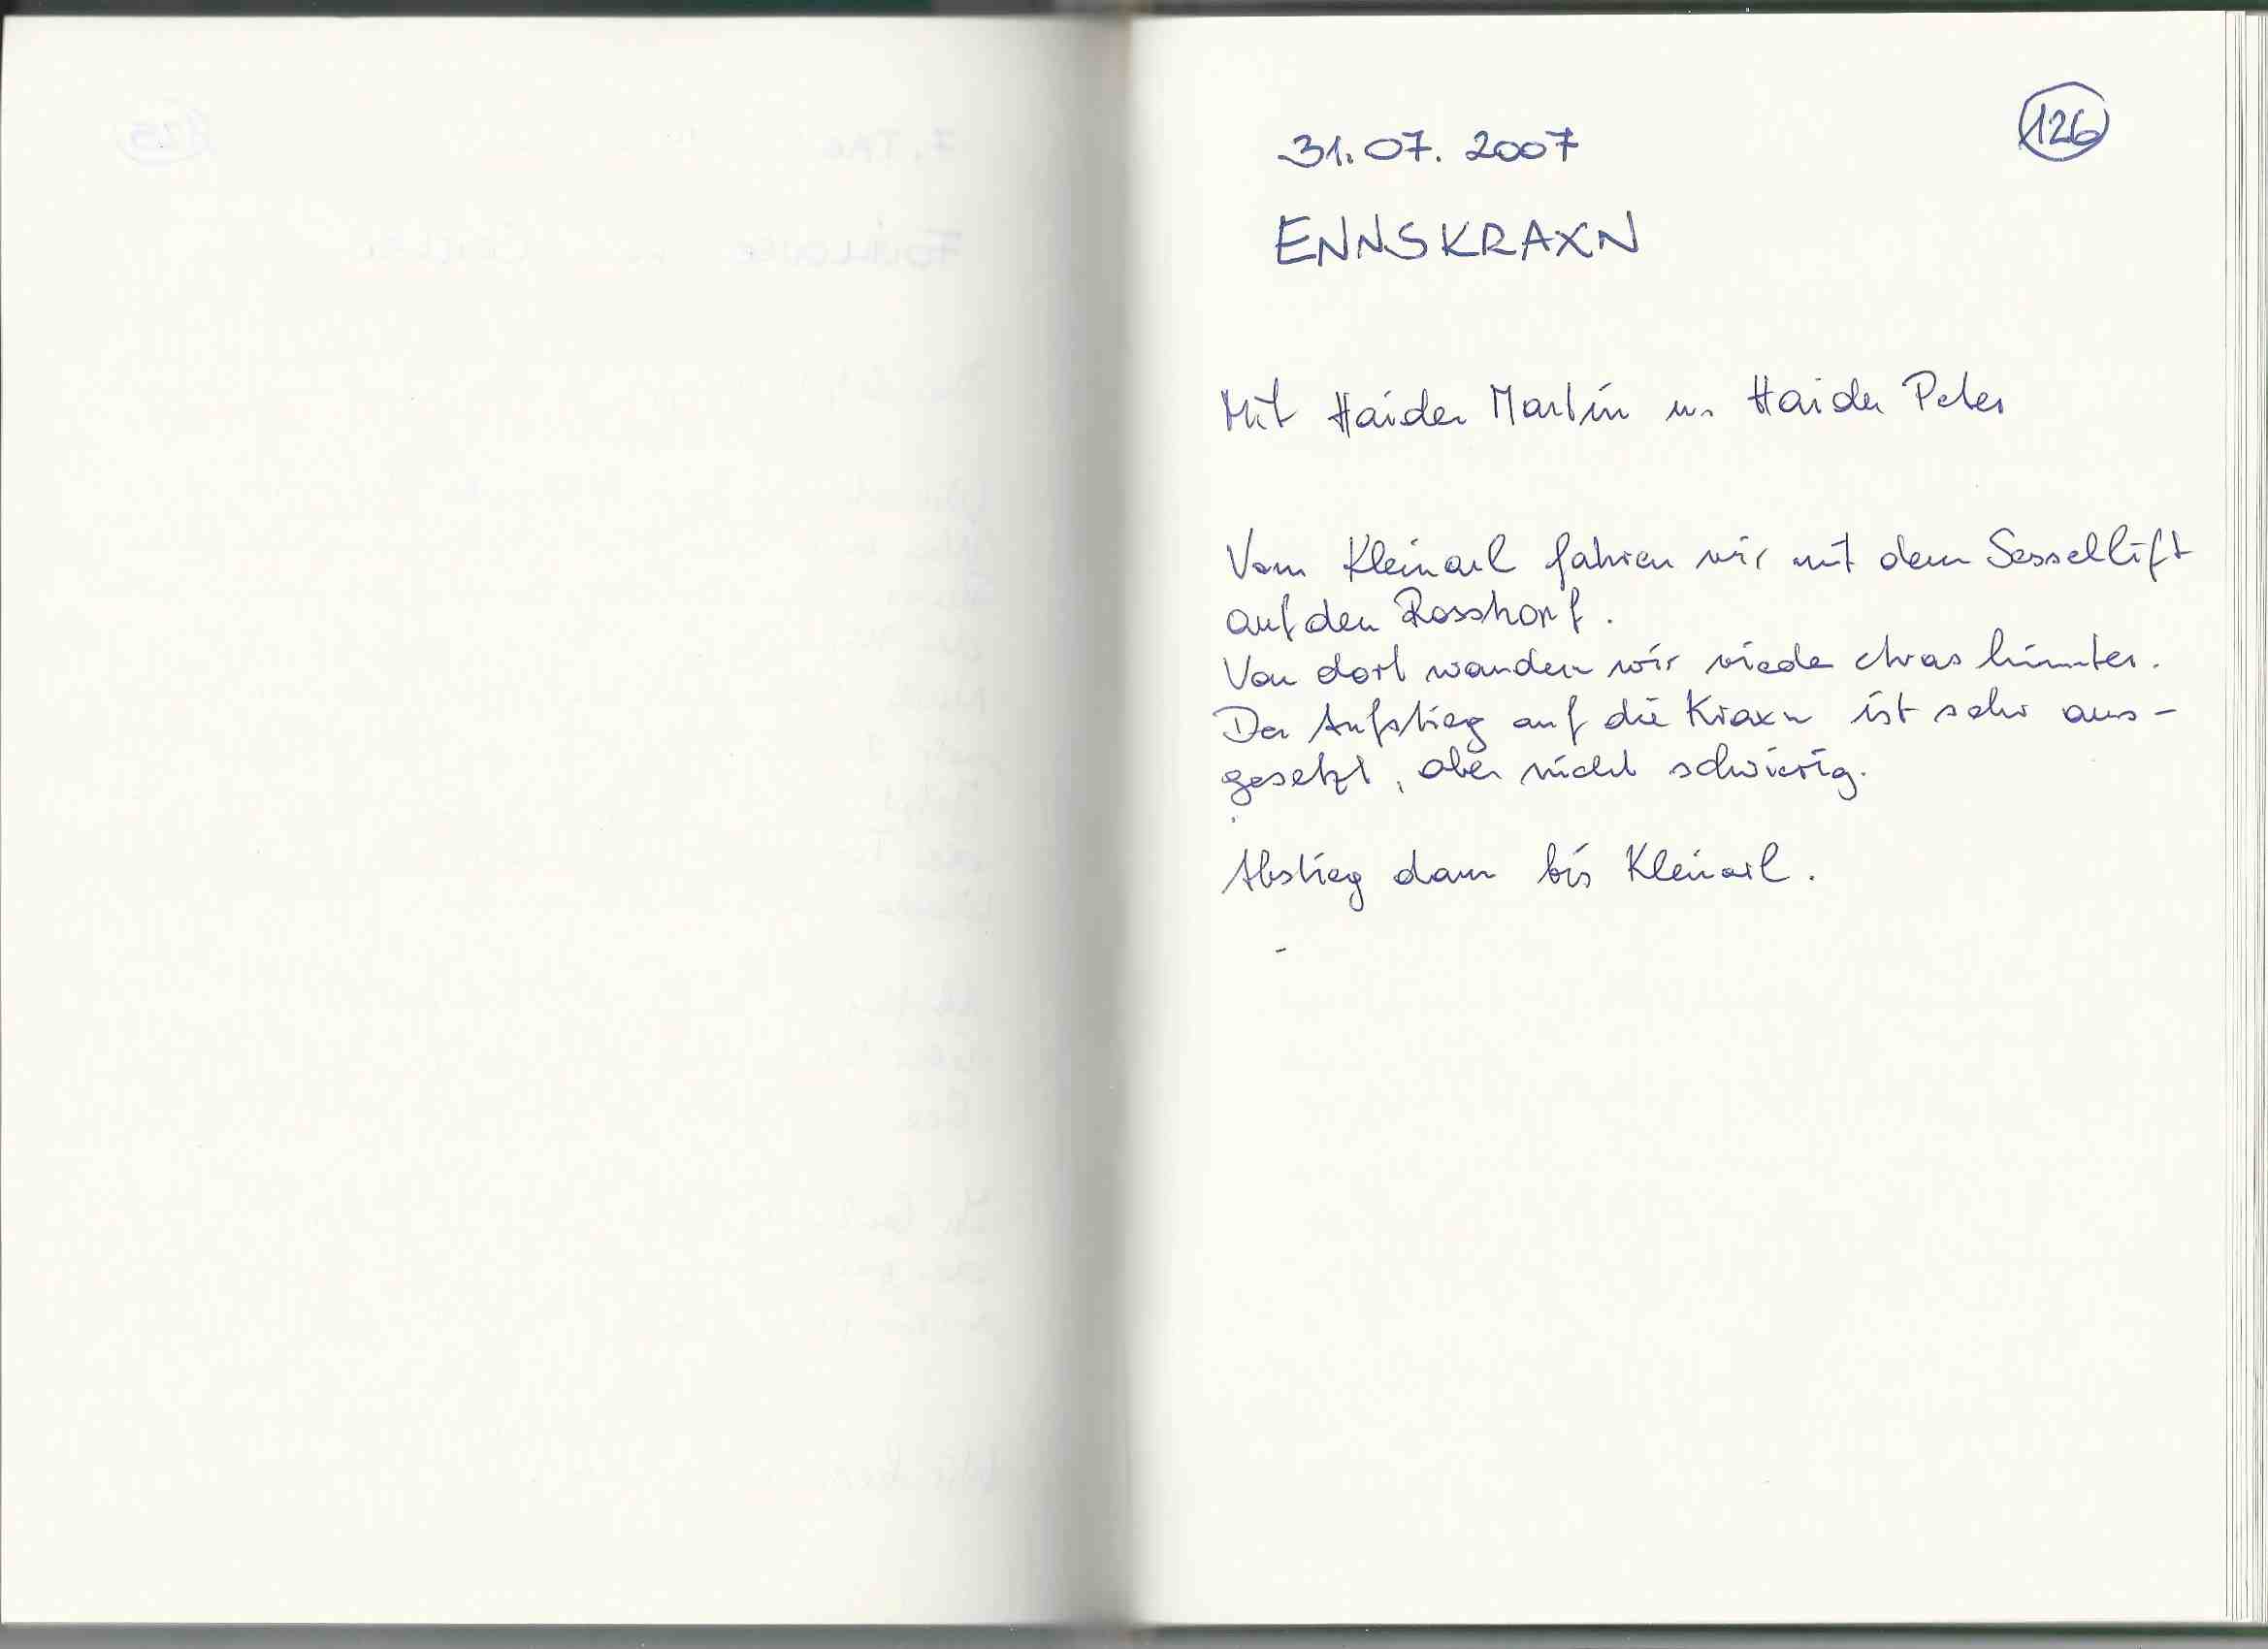 126
31.07.2007
ENNSKRAXN
Mit Haider Martin u. Haider Peter
Vom Kleinarl fahren wir mit dem Sessellift
auf den Rosskopf.
Von dort wandern wir wieder etwas hinunter.
Der Aufstieg auf die Kraxn ist sehr aus-
gesetzt, aber nicht schwierig.
Abstieg dann bis Kleinarl.
-